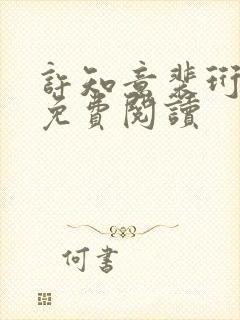 許知意裴珩
免費閱讀
何書